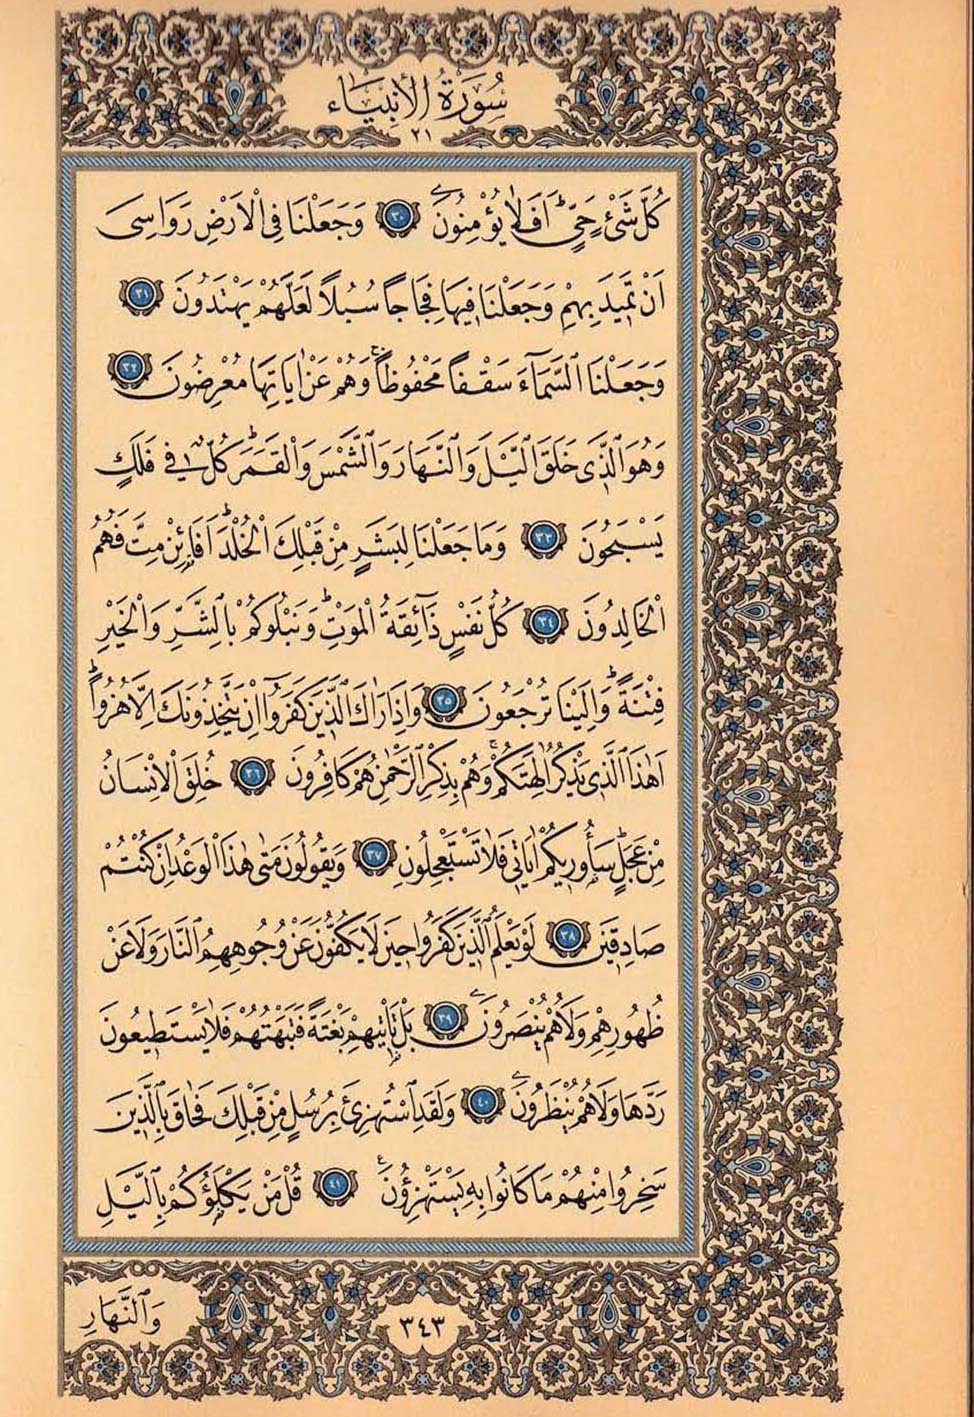 سُورَةُ الْأَنْبِيَاءِ
٢١
كُلَّ شَىْءٍ حَىٍّۜ اَفَلَا يُؤْمِنُونَ ﴿٣٠﴾ وَجَعَلْنَا فِى الْاَرْضِ رَوَاسِىَ
اَنْ تَمٖيدَ بِهِمْ وَجَعَلْنَا فٖيهَا فِجَاجًا سُبُلًا لَعَلَّهُمْ يَهْتَدُونَ ﴿٣١﴾
وَجَعَلْنَا السَّمَٓاءَ سَقْفًا مَحْفُوظًاۚ وَهُمْ عَنْ اٰيَاتِهَا مُعْرِضُونَ ﴿٣٢﴾
وَهُوَ الَّذٖى خَلَقَ الَّيْلَ وَالنَّهَارَ وَالشَّمْسَ وَالْقَمَرَۜ كُلٌّ فٖى فَلَكٍ
يَسْبَحُونَ ﴿٣٣﴾ وَمَا جَعَلْنَا لِبَشَرٍ مِنْ قَبْلِكَ الْخُلْدَۜ اَفَا۬ئِنْ مِتَّ فَهُمُ
الْخَالِدُونَ ﴿٣٤﴾ كُلُّ نَفْسٍ ذَٓائِقَةُ الْمَوْتِۜ وَنَبْلُوكُمْ بِالشَّرِّ وَالْخَيْرِ
فِتْنَةًۜ وَاِلَيْنَا تُرْجَعُونَ ﴿٣٥﴾ وَاِذَا رَاٰكَ الَّذٖينَ كَفَرُٓوا اِنْ يَتَّخِذُونَكَ اِلَّا هُزُوًاۜ
اَهٰذَا الَّذٖى يَذْكُرُ اٰلِهَتَكُمْۚ وَهُمْ بِذِكْرِ الرَّحْمٰنِ هُمْ كَافِرُونَ ﴿٣٦﴾ خُلِقَ الْاِنْسَانُ
مِنْ عَجَلٍۜ سَاُو۬رٖيكُمْ اٰيَاتٖى فَلَا تَسْتَعْجِلُونِ ﴿٣٧﴾ وَيَقُولُونَ مَتٰى هٰذَا الْوَعْدُ اِنْ كُنْتُمْ
صَادِقٖينَ ﴿٣٨﴾ لَوْ يَعْلَمُ الَّذٖينَ كَفَرُوا حٖينَ لَا يَكُفُّونَ عَنْ وُجُوهِهِمُ النَّارَ وَلَا عَنْ
ظُهُورِهِمْ وَلَا هُمْ يُنْصَرُونَ ﴿٣٩﴾ بَلْ تَاْتٖيهِمْ بَغْتَةً فَتَبْهَتُهُمْ فَلَا يَسْتَطٖيعُونَ
رَدَّهَا وَلَا هُمْ يُنْظَرُونَ ﴿٤٠﴾ وَلَقَدِ اسْتُهْزِئَ بِرُسُلٍ مِنْ قَبْلِكَ فَحَاقَ بِالَّذٖينَ
سَخِرُوا مِنْهُمْ مَا كَانُوا بِهٖ يَسْتَهْزِؤُ۫نَ ﴿٤١﴾ قُلْ مَنْ يَكْلَؤُ۬كُمْ بِالَّيْلِ
وَالنَّهَارِ
٣٤٣